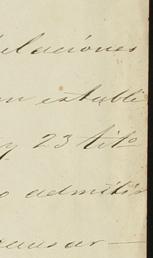 elaciones
n establi
y 23 tito
o admitir
causar —